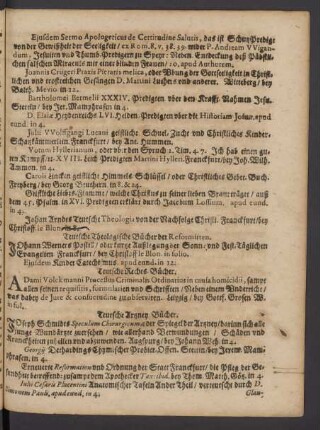 Ejusdem Sermo Apologeticus de Certitudine Salutis, das ist Schutz-Predig
von der Gewißheit der Seeligkeit / ex Rom. 8. v. 38. 39. wider P. Andream VVigan-
dum, Jesuiten und Thumb-Predigern zu Speyr: Neben Entdeckung deß Päbstli-
chen falschen Miracule mit einer blinden Frauen / 10. apud Authorem.
Joannis Crügeri Praxis Pietatis melica, oder Übung der Gottseeligkeit in Christ-
lichen und trostreichen Gesängen D. Martini Lutheri und anderer. Witteberg / bey
Balth. Mevio in 12.
Bartholomæi Bernelii XXXIV. Predigten über den Krafft-Nahmen Jesu.
Stettin / bey Jer. Mamphrasen in 4.
D. Eliæ Heydenreichs LVI. Heiden Predigten über die Historiam Jobæ. apud
eund. in 4.
Julii VVolffgangi Lucani geistliche Schuel-Zucht und Christliches Kinder-
Schatzkämmerlein. Franckfurt / bey Ant. Hummen.
Votum Bernerianum, oder über den Spruch 2. Tim. 4. 7. Ich hab einen gu-
ten Kampff / 12. XVIII. Leich Predigten Martini Hylleri. Franckfurt / bey Joh. Wilh.
Ammon. in 4.
Caroli Encken geistliche Himmels Schlüssel / oder Christliches Gebet-Buch.
Freyberg / bey Georg Beuthern in 8. & 24.
Geistliche Liebes-Flamme / welche Christus zu seiner lieben Braut träget / auß
dem 45. Psalm in XVI. Predigten erklärt durch Jacobum Lossium, apud eund.
in 4.
Johan Arnds Teutsche Theologia von der Nachfolge Christi. Franckfurt / bey
Christoff le Blon in 8.
Teutsche Theologische Bücher der Reformirten.
Johann Werners Postill / oder kurtze Außlegung der Sonn- und Fest-Täglichen
Evangelien Franckfurt / bey Christoff le Blon in folio.
Ejusdem Kinder Catechismus. apud eund. in 12.
Teutsche Rechts-Bücher.
Adami Volckmanni Processus Criminalis Ordinatorii in causa homicidii, sampt
allen nothwendigen Registern, formulorum und Schrifften / Neben einem Underricht /
was dabey de Jure & consuetudine zu observiren. Leipzig / bey Gottf. Grosen W.
in 4.
Teutsche Artzney Bücher.
Joseph Schmides Speculum Chirurgicum oder Spiegel der Artzney / darinn sich alle
junge Wundärtzte zuersehen / wie allerhand Verwundungen / Schäden und
Kranckheiten zuheilen und abzuwenden. Augspurg / bey Johann Weh. in 4.
Georgij Detharding 28. Chymischer Probier-Ofen. Stettin / bey Jerem. Mam-
phrasen, in 4.
Erneuerte Reformation und Ordnung der Statt Franckfurt / die Pfleg der Ge-
sundheit betreffend: zusampt dem Apothecker Tax-ibid. bey Thom. Matth. Götz. in 4.
Julii Cæsaris Placentini Anatomischer Tafeln Ander Theil / verteutscht durch D.
Simonem Pauli, apud eund, in 4.
Glau-